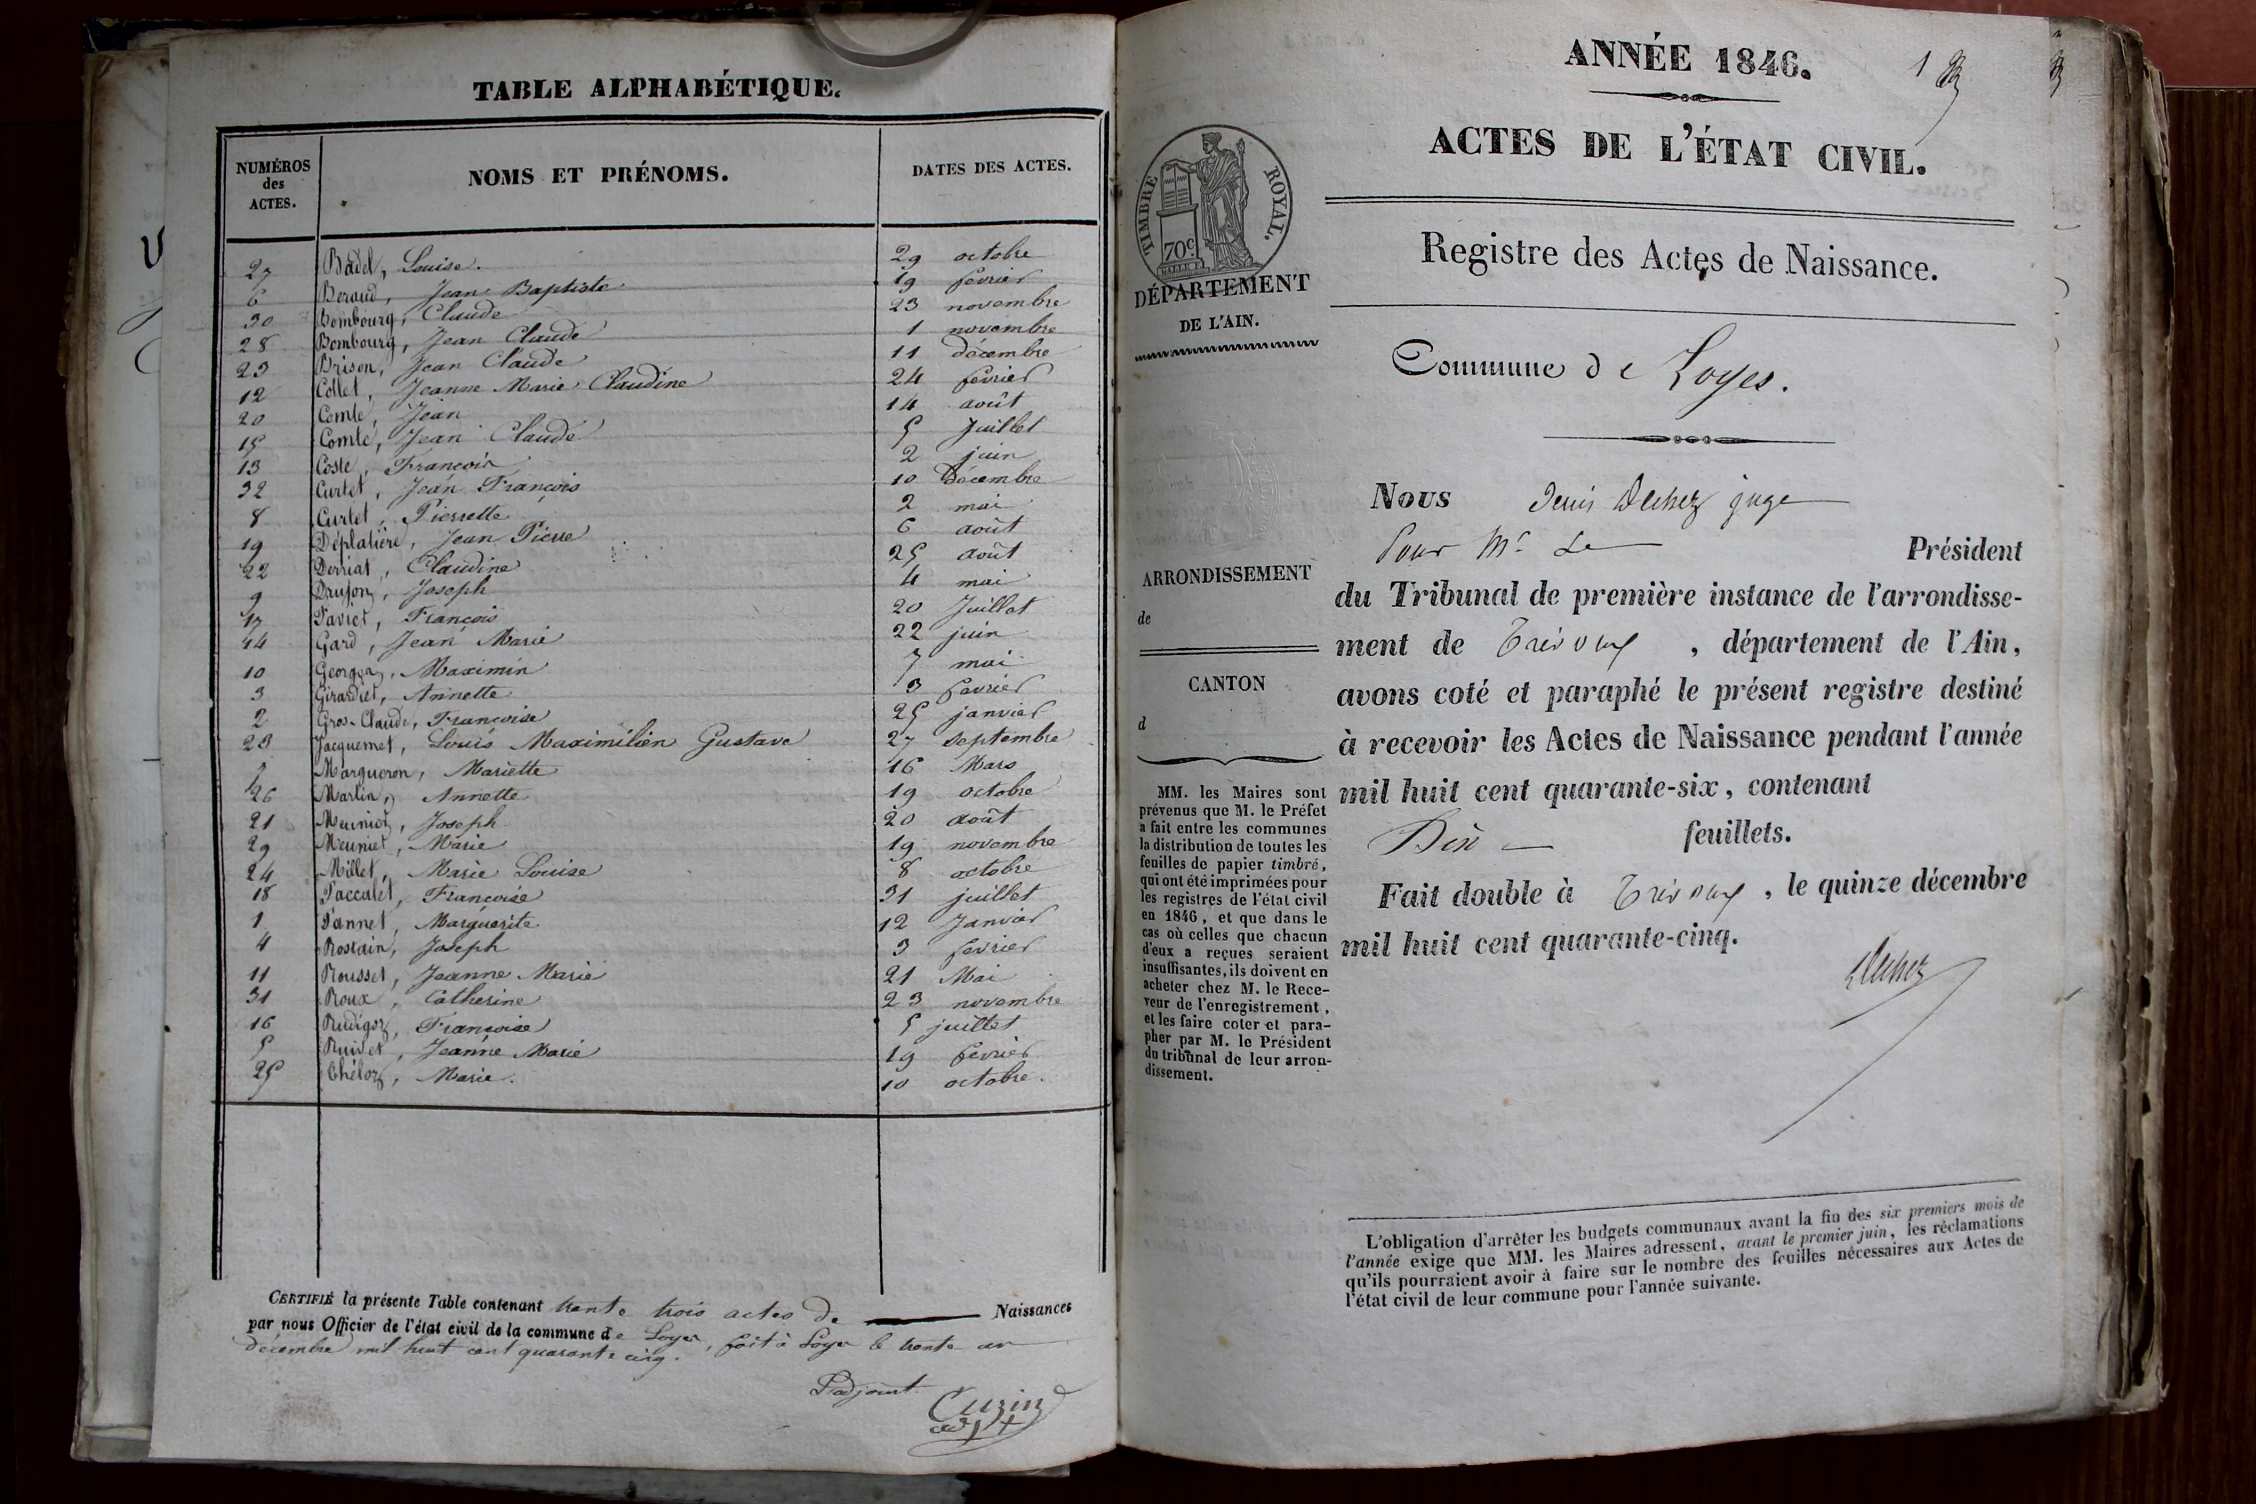 TABLE ALPHABÉTIQUE.
NUMÉROS des ACTES. NOMS ET PRÉNOMS. DATES DES ACTES.
27 Badel, Louise. 29 octobre
6 Beraud, Jean Baptiste 19 fevrier
30 Bombourg, Claude 23 novembre
28 Bombourg, Jean Claude 1 novembre
23 Brison, Jean Claude 11 décembre
12 Collet, Jeanne Marie Claudine 24 fevrier
20 Comte, Jean 14 août
15 Comte, Jean Claude 5 Juillet
13 Coste, François 2 juin
32 Curtet, Jean François 10 Décembre
8 Curtet, Pierrette 2 mai
19 Déplatière, Jean Pierre 6 août
22 Derriat, Claudine 25 août
9 Joseph 4 mai
17 Faviet, François 20 Juillet
14 Gard, Jean Marie 22 juin
10 Georges, Maximin 7 mai
3 Girardiet, Annette 3 fevrier
2 Gros-Claude, Françoise 25 janvier
23 Jacquemet, Louis Maximilien Gustave 27 septembre
7 Margueron, Mariette 16 Mars
26 Martin, Annette 19 octobre
21 Meuniot, Joseph 20 août
29 Meuniet, Marie 19 novembre
24 Millet, Marie Louise 8 octobre
18 Paccalet, Françoise 31 juillet
1 Pannet, Marguerite 12 Janvier
4 Rostain, Joseph 3 fevrier
11 Rousset, Jeanne Marie 21 Mai
31 Roux, Catherine 23 novembre
16 Rudigoz, Françoise 5 juillet
5 Ruivet, Jeanne Marie 19 fevrier
25 Théloz, Marie. 10 octobre.
CERTIFIÉ la présente Table contenant trente trois actes de Naissances
par nous Officier de l'état civil de la commune de Loyes, fait à Loyes le trente un
décembre mil huit cent quarante cinq.
L'adjoint
Cuzin
adjt
1
ANNÉE 1846.
ACTES DE L'ÉTAT CIVIL.
TIMBRE ROYAL.
70c
DÉPARTEMENT
DE L'AIN.
Registre des Actes de Naissance.
Commune de Loyes.
Nous Denis Dechez juge
Pour Mr Le Président
du Tribunal de première instance de l'arrondisse-
ment de Trévoux, département de l'Ain,
avons coté et paraphé le présent registre destiné
à recevoir les Actes de Naissance pendant l'année
mil huit cent quarante-six, contenant
Dix feuillets.
Fait double à Trévoux, le quinze décembre
mil huit cent quarante-cinq.
Dechez
ARRONDISSEMENT
de
CANTON
d
MM. les Maires sont
prévenus que M. le Préfet
a fait entre les communes
la distribution de toutes les
feuilles de papier timbré,
qui ont été imprimées pour
les registres de l'état civil
en 1846, et que dans le
cas où celles que chacun
d'eux a reçues seraient
insuffisantes, ils doivent en
acheter chez M. le Rece-
veur de l'enregistrement,
et les faire coter et para-
pher par M. le Président
du tribunal de leur arron-
dissement.
L'obligation d'arrêter les budgets communaux avant la fin des six premiers mois de
l'année exige que MM. les Maires adressent, avant le premier juin, les réclamations
qu'ils pourraient avoir à faire sur le nombre des feuilles nécessaires aux Actes de
l'état civil de leur commune pour l'année suivante.